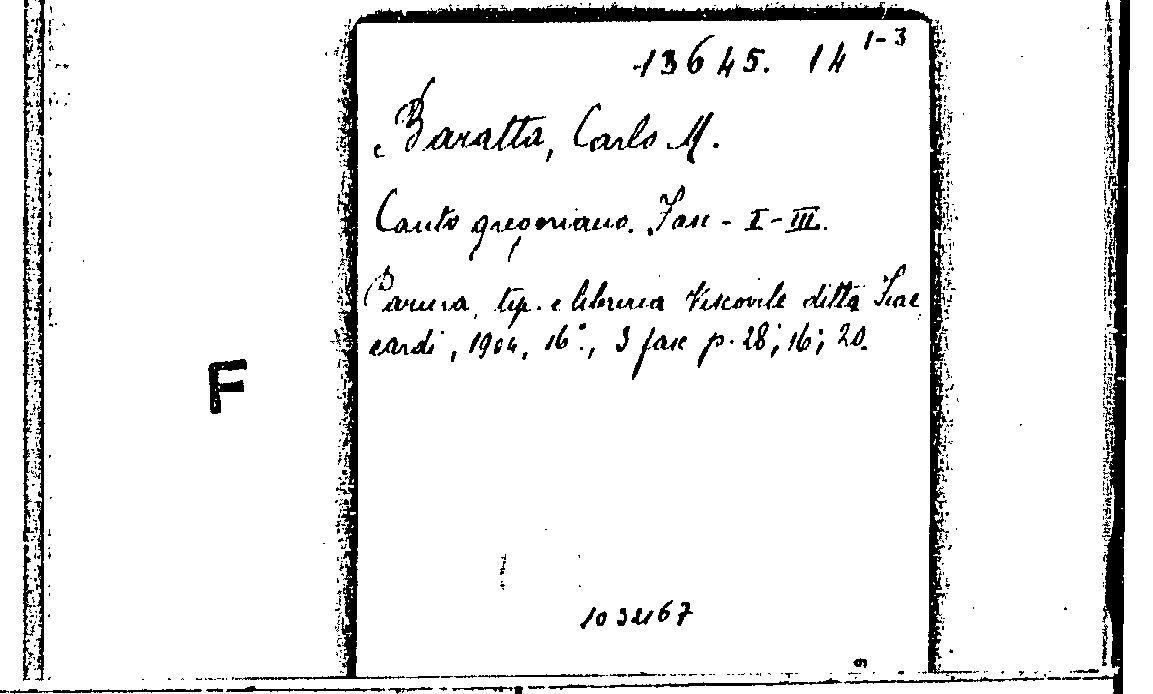 13645. 14 1-3
Baratta, Carlo M.
Canto gregoriano. Fasc - I - III.
Parma, tip. e libreria Vescovile ditta Fiac
cardi, 1904, 16°., 3 fasc p. 28; 16; 20.
F